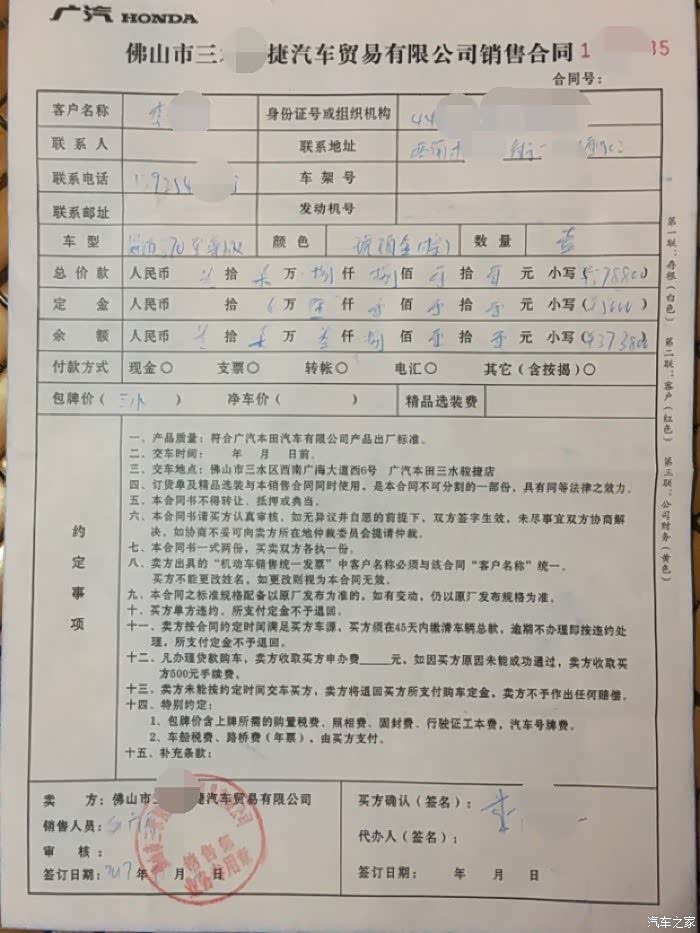 广汽 HONDA
佛山市三水 捷汽车贸易有限公司销售合同 1 35
合同号：
客户名称 李 身份证号或组织机构 44
联系人 联系地址
联系电话 车架号
联系邮址 发动机号
车型 颜色 数量 壹
总价款 人民币 拾 万 仟 捌 佰 零 拾 零 元 小写（ 78800）
定金 人民币 拾 万 仟 零 佰 零 拾 零 元 小写（
余额 人民币 拾 万 仟 捌 佰 零 拾 零 元 小写（ 73800）
付款方式 现金○ 支票○ 转帐○ 电汇○ 其它（含按揭）○
包牌价（ 三水 ） 净车价（ ） 精品选装费
约定事项
一、产品质量：符合广汽本田汽车有限公司产品出厂标准。
二、交车时间： 年 月 日前。
三、交车地点：佛山市三水区西南广海大道西6号 广汽本田三水骏捷店
四、订货单及精品选装与本销售合同同时使用，是本合同不可分割的一部份，具有同等法律之效力。
五、本合同书不得转让、抵押或典当。
六、本合同书请买方认真审核，如无异议并自愿的前提下，双方签字生效，未尽事宜双方协商解
决，如协商不妥可向卖方所在地仲裁委员会提请仲裁。
七、本合同书一式两份，买卖双方各执一份。
八、卖方出具的“机动车销售统一发票”中客户名称必须与该合同“客户名称”统一。
买方不能更改姓名，如更改则视为本合同无效。
九、本合同之标准规格配备以原厂发布为准的，如有变动，仍以原厂发布规格为准。
十、买方单方违约、所支付定金不予退回。
十一、卖方按合同约定时间满足买方车源，买方须在45天内缴清车辆总款，逾期不办理即按违约处
理，所支付定金不予退回。
十二、凡办理贷款购车，卖方收取买方申办费____元，如因买方原因未能成功通过，卖方收取买
方500元手续费。
十三、卖方未能按约定时间交车买方，卖方将退回买方所支付购车定金，卖方不予作出任何赔偿。
十四、特别约定：
1、包牌价含上牌所需的购置税费、照相费、固封费、行驶证工本费，汽车号牌费。
2、车船税费、路桥费（年票），由买方支付。
十五、补充条款：
第一联：存根（白色） 第二联：客户（红色） 第三联：公司财务（黄色）
卖 方：佛山市三 捷汽车贸易有限公司
销售人员：
审 核：
签订日期：2017年 月 日
销售部
业务专用章
买方确认（签名）： 李
代办人（签名）：
签订日期： 年 月 日
汽车之家